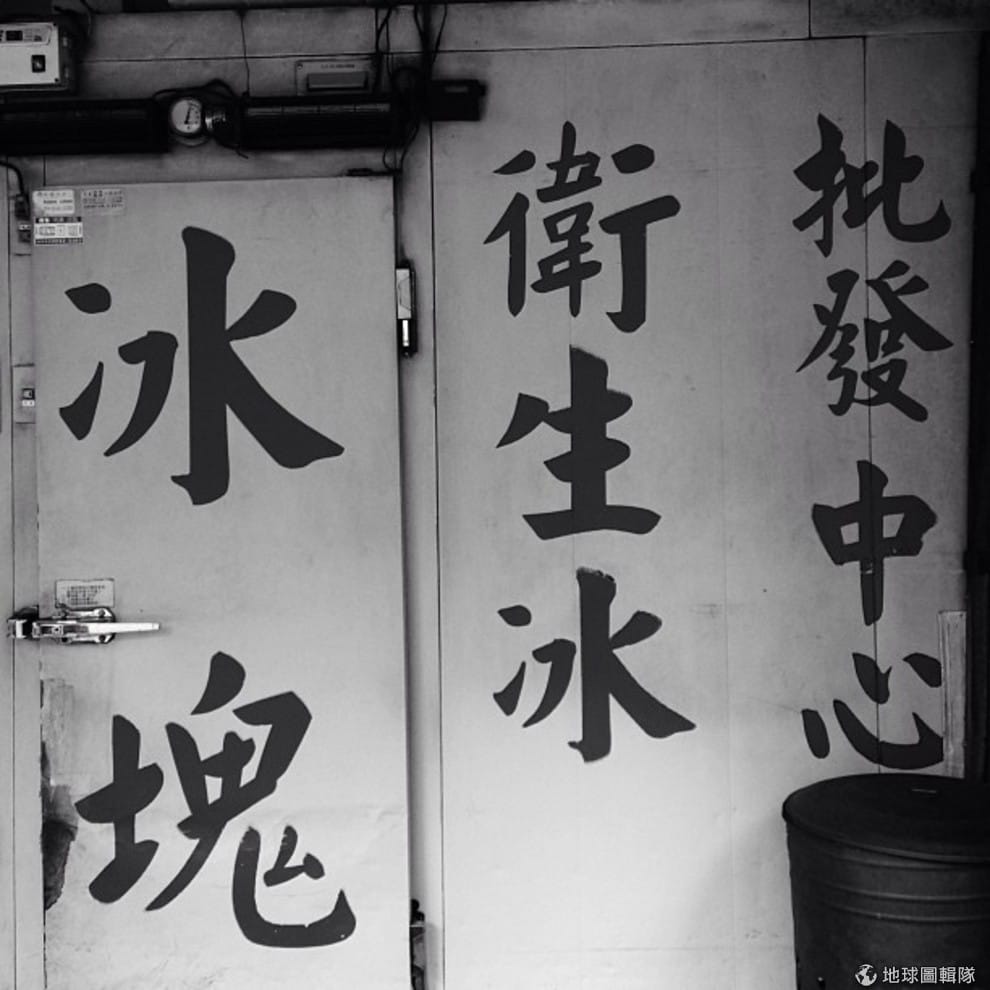 批發中心
衛生冰
冰塊
地球圖輯隊